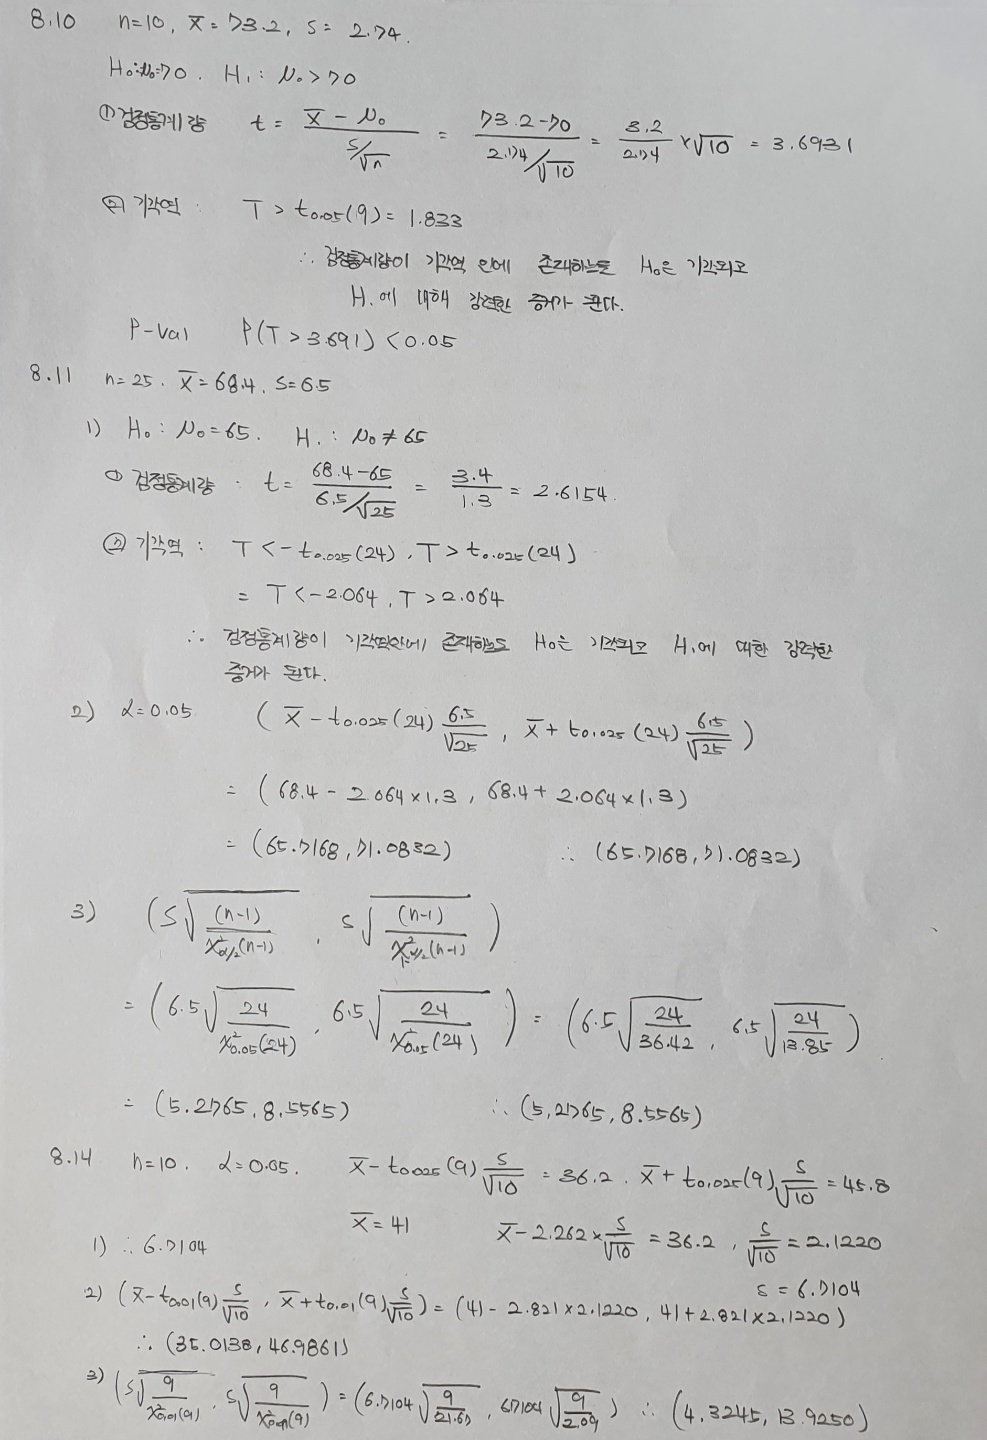 8.10 n=10, x̄=73.2, s=2.74.
H₀:μ₀=70. H₁: μ₀>70
① 검정통계량 t = (x̄-μ₀)/(s/√n) = (73.2-70)/(2.74/√10) = 3.2/2.74 × √10 = 3.6931
② 기각역 : T > t₀.₀₅(9) = 1.833
∴ 검정통계량이 기각역 안에 존재하는도 H₀은 기각되고
H₁에 대해 강력한 증거가 된다.
P-val P(T > 3.691) < 0.05
8.11 n=25. x̄=68.4, s=6.5
1) H₀ : μ₀=65. H₁ : μ₀≠65
① 검정통계량 : t = (68.4-65)/(6.5/√25) = 3.4/1.3 = 2.6154.
② 기각역 : T < -t₀.₀₂₅(24), T > t₀.₀₂₅(24)
= T < -2.064, T > 2.064
∴ 검정통계량이 기각역안에 존재하는도 H₀은 기각되고 H₁에 대한 강력한
증거가 된다.
2) α=0.05 (x̄ - t₀.₀₂₅(24) 6.5/√25, x̄ + t₀.₀₂₅(24) 6.5/√25)
= (68.4 - 2.064×1.3, 68.4 + 2.064×1.3)
= (65.7168, 71.0832) ∴ (65.7168, 71.0832)
3) (s√((n-1)/χ²α/₂(n-1)), s√((n-1)/χ²₁₋α/₂(n-1)))
= (6.5√(24/χ²₀.₀₅(24)), 6.5√(24/χ²₀.₉₅(24))) = (6.5√(24/36.42), 6.5√(24/13.85))
= (5.2765, 8.5565) ∴ (5.2765, 8.5565)
8.14 n=10. α=0.05. x̄ - t₀.₀₂₅(9) s/√10 = 36.2. x̄ + t₀.₀₂₅(9) s/√10 = 45.8
x̄ = 41 x̄ - 2.262 × s/√10 = 36.2, s/√10 = 2.1220
1) ∴ 6.7104
s = 6.7104
2) (x̄ - t₀.₀₁(9) s/√10, x̄ + t₀.₀₁(9) s/√10) = (41 - 2.821×2.1220, 41 + 2.821×2.1220)
∴ (35.0138, 46.9861)
3) (s√(9/χ²₀.₀₁(9)), s√(9/χ²₀.₉₉(9))) = (6.7104√(9/21.67), 6.7104√(9/2.09)) ∴ (4.3245, 13.9250)